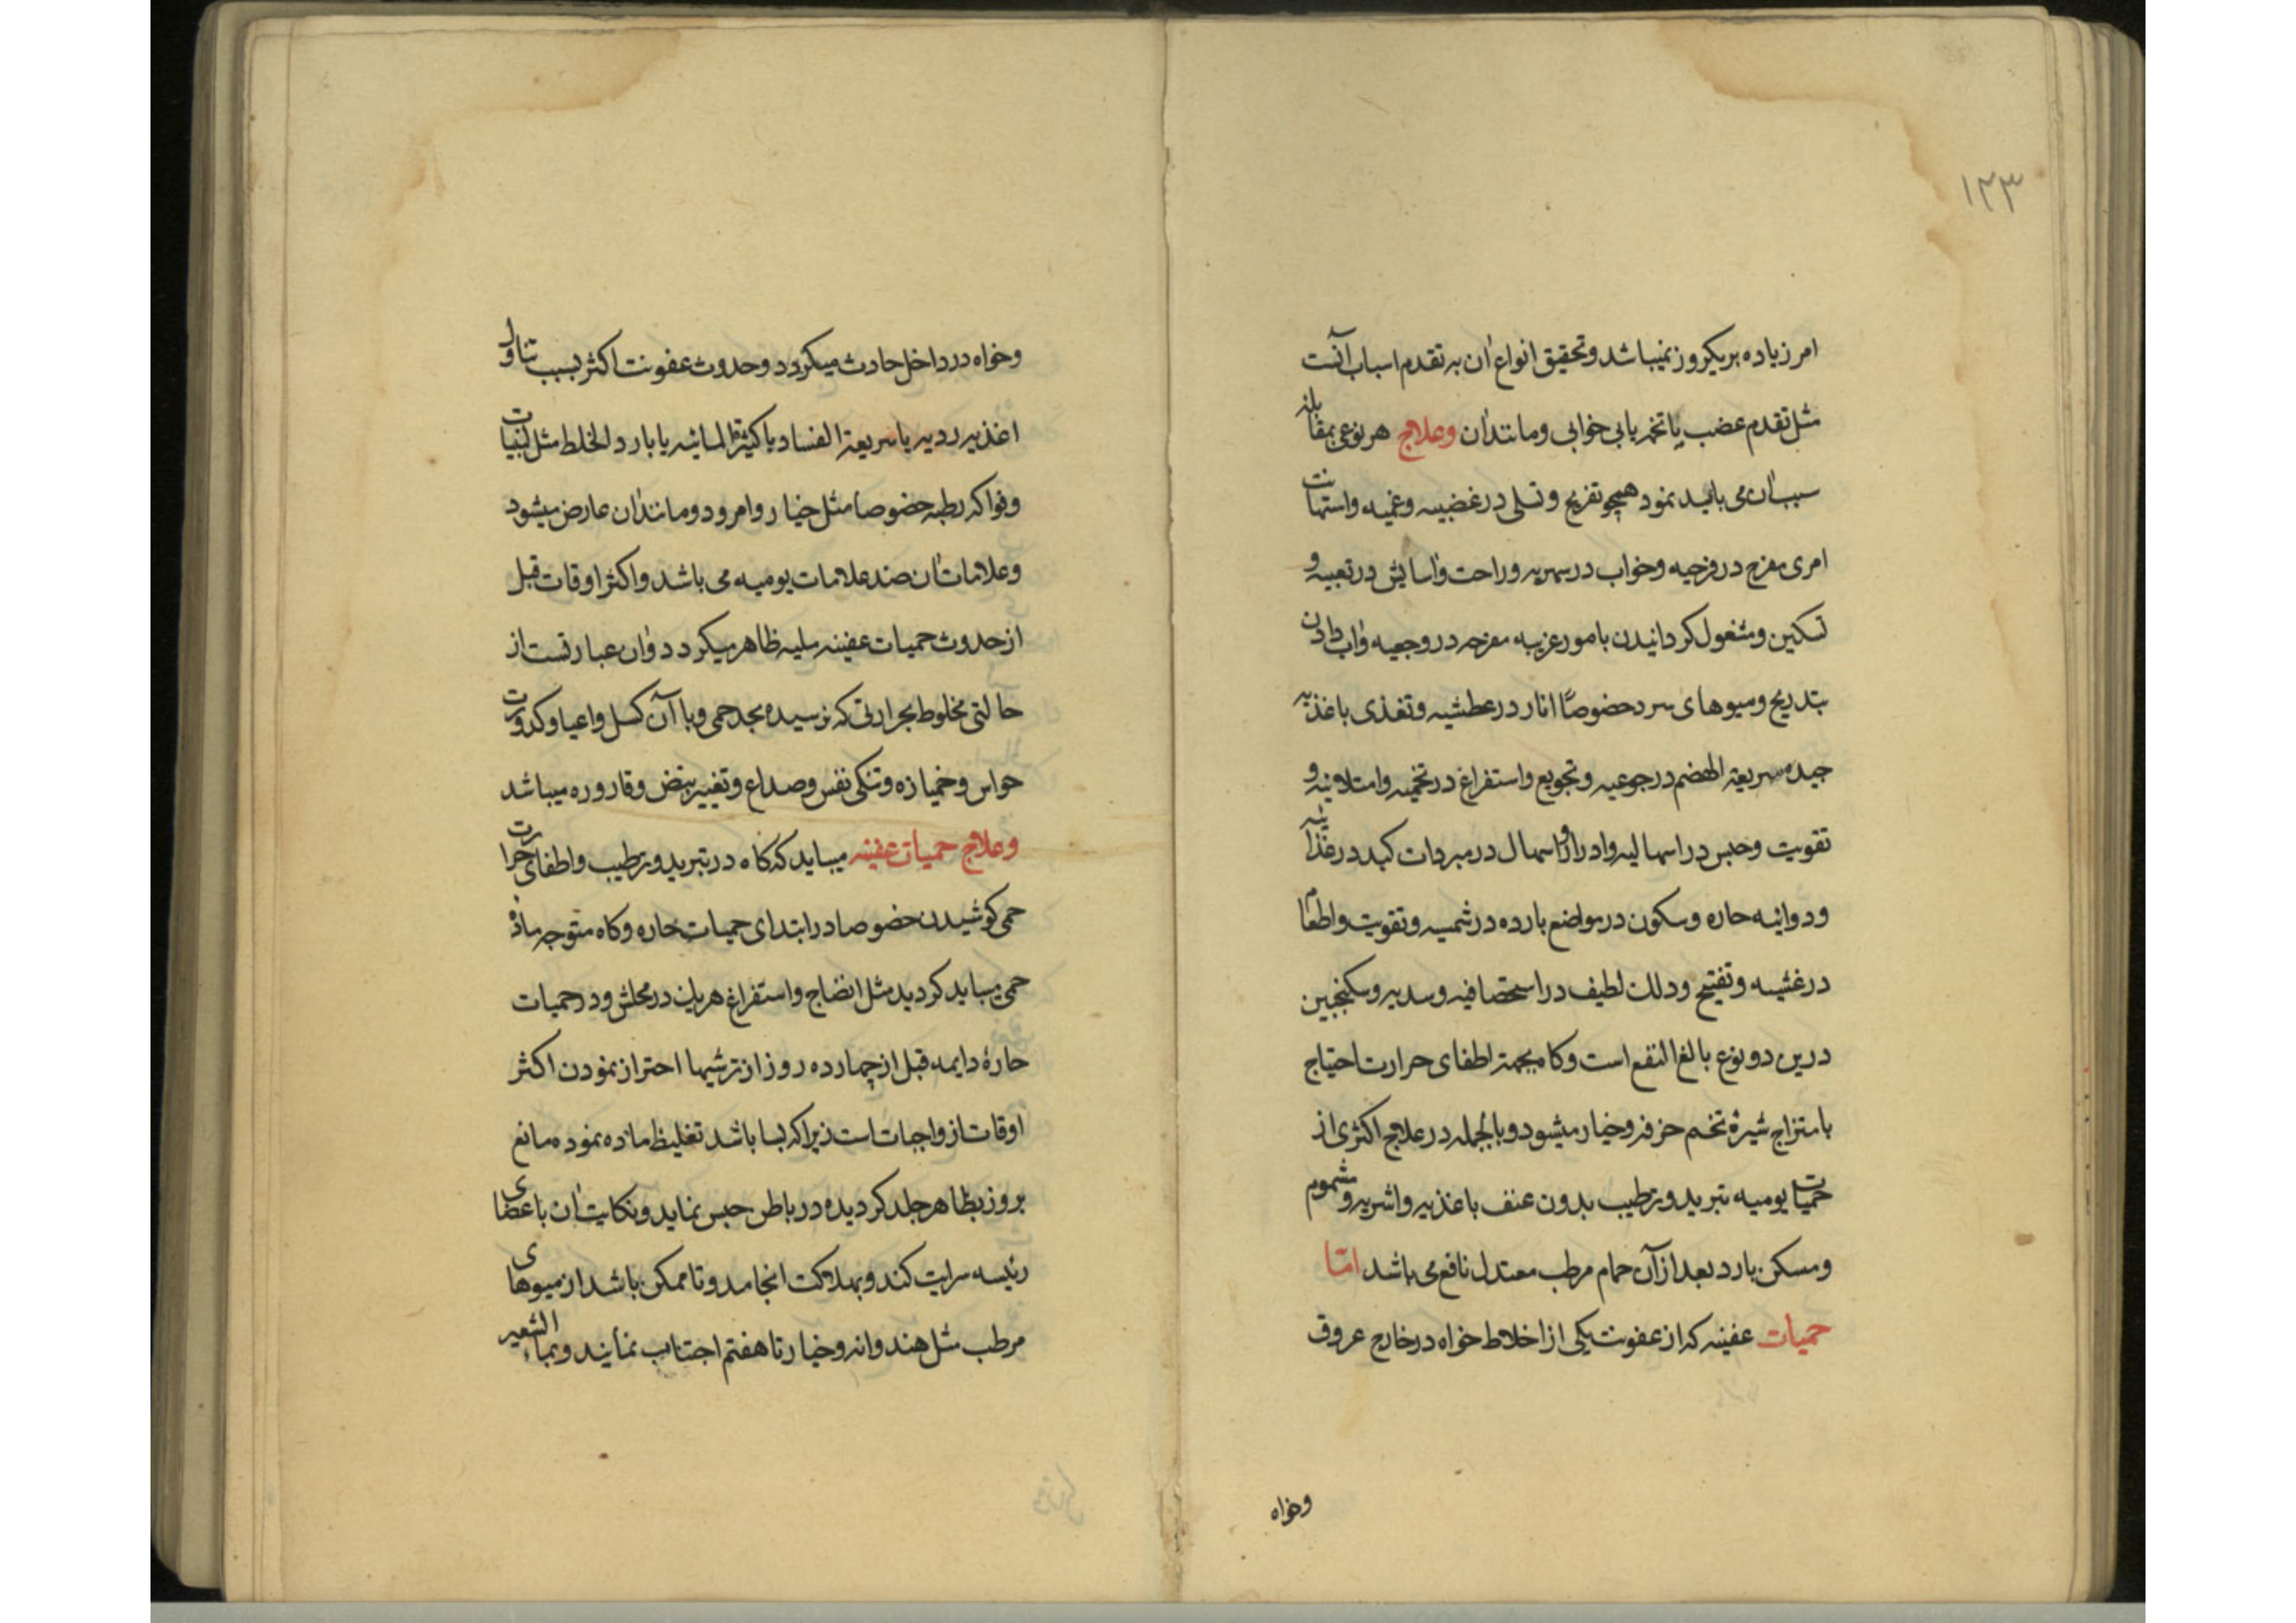 ۱۲۳
امر زیاده بریکروز نمیباشد و تحقیق انواع آن به تقدم اسباب آنست
مثل تقدم غضب یا تخمه یا بی خوابی و مانند آن وعلاج هر نوعی بمقابله
سبب آن می باید نمود همچو تفریح و تسلی در غضبیه و غمیه و استهانت
امری مفرح در فزحیه و خواب در سهریه و راحت و آسایش در تعبیه و
تسکین و مشغول کردانیدن بامور غریبه مفرحه در وجعیه و آب دادن
بتدریج و میوهای سرد خصوصاً انار در عطشیه و تغذی باغذیه
جیده سریعة الهضم در جوعیه و تجویع و استفراغ در تخمیه و امتلائیه و
تقویت و حبس در اسهالیه و ادرار و اسهال در مبردات کبد در غذائیه
ودوائیه حاره و سکون در مواضع بارده در شمسیه و تقویت و اطعام
در غشیه و تفتیح و دلک لطیف در استحصافیه و سدیه و سکنجبین
درین دو نوع بالغ النفع است و کا بجهة اطفای حرارت احتیاج
بامتزاج شیرهٔ تخم خرفه و خیار میشود و بالجمله در علاج اکثری از
حمیات یومیه تبرید و ترطیب بدون عنف باغذیه و اشربه و شموم
و مسکن بارد بعد از آن حمام مرطب معتدل نافع می باشد امّا
حمیات عفینه که از عفونت یکی از اخلاط خواه در خارج عروق
وخواه
وخواه در داخل حادث میکردد و حدوث عفونت اکثر بسبب تناول
اغذیه ردیه یا سریعة الفساد یا کثیرة المائیه یا بارد الخلط مثل لبنیات
و فواکه رطبه خصوصا مثل خیار و امرود و مانند آن عارض میشود
و علامات آن ضد علامات یومیه می باشد و اکثر اوقات قبل
از حدوث حمیات عفینه ملیه ظاهر میکردد و آن عبارتست از
حالتی مخلوط بحرارتی که نرسیده بحد حمی و با آن کسل و اعیا و کدورت
حواس و خمیازه و تنکی نفس و صداع و تغییر نبض و قاروره میباشد
وعلاج حمیات عفینه میباید که کاه در تبرید و ترطیب و اطفای حرارت
حمی کوشیدن خصوصا در ابتدای حمیات حاره و کاه متوجه مادهٔ
حمی میباید کردید مثل انضاج و استفراغ هریک در محلش و در حمیات
حارهٔ دایمه قبل از چهارده روز از ترشیها احتراز نمودن اکثر
اوقات از واجبات است زیرا که بسا باشد تغلیظ ماده نموده مانع
بروز بظاهر جلد کردیده در باطن حبس نماید و نکایت آن باعضای
رئیسه سرایت کند و بهلاکت انجامد و تا ممکن باشد از میوهای
مرطب مثل هندوانه و خیار تا هفتم اجتناب نمایند و بماء الشعیر